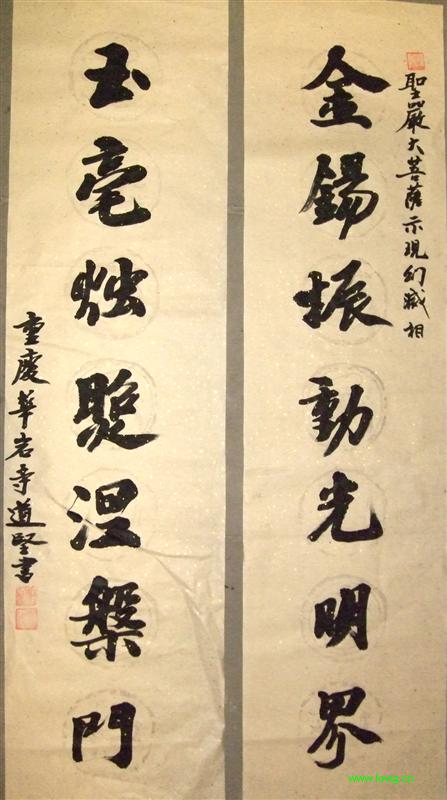 聖嚴大菩薩示現幻滅相
金錫振動光明界
玉毫烛涅槃門
重慶華岩寺道堅書